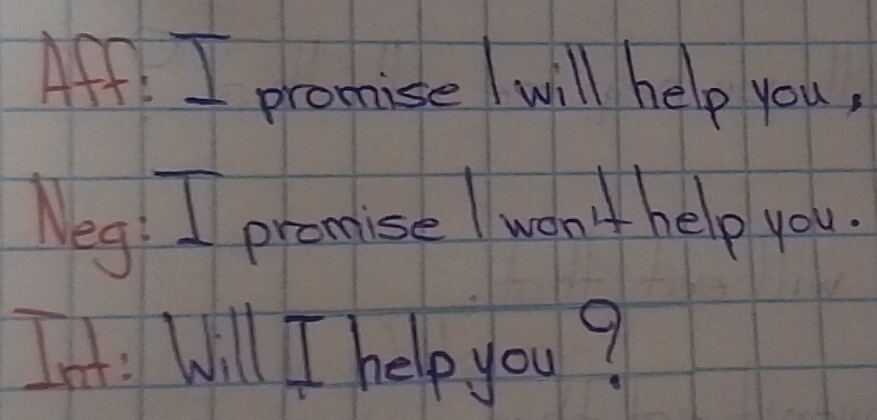 Aff: I promise I will help you,
Neg: I promise I won't help you.
Int: Will I help you?